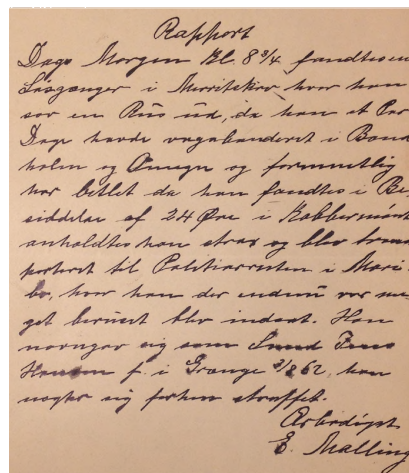 Rapport
Dags Morgen Kl. 8 3/4 fandtes en
Løsgænger i Merritskov hvor han
sov en Rus ud, da han et Par
Dage havde vagabonderet i Band
holm og Omegn og formentlig
har betlet da han fandtes i Be
siddelse af 24 Øre i Kobbermønt
anholdtes han strax og blev trans
porteret til Politiarresten i Mari
bo, hvor han der endnu var me
get beruset blev indsat. Han
navngav sig som
f. i Grænge 62, han
nægter sig forhen straffet.
Ærbødigst
E. Malling